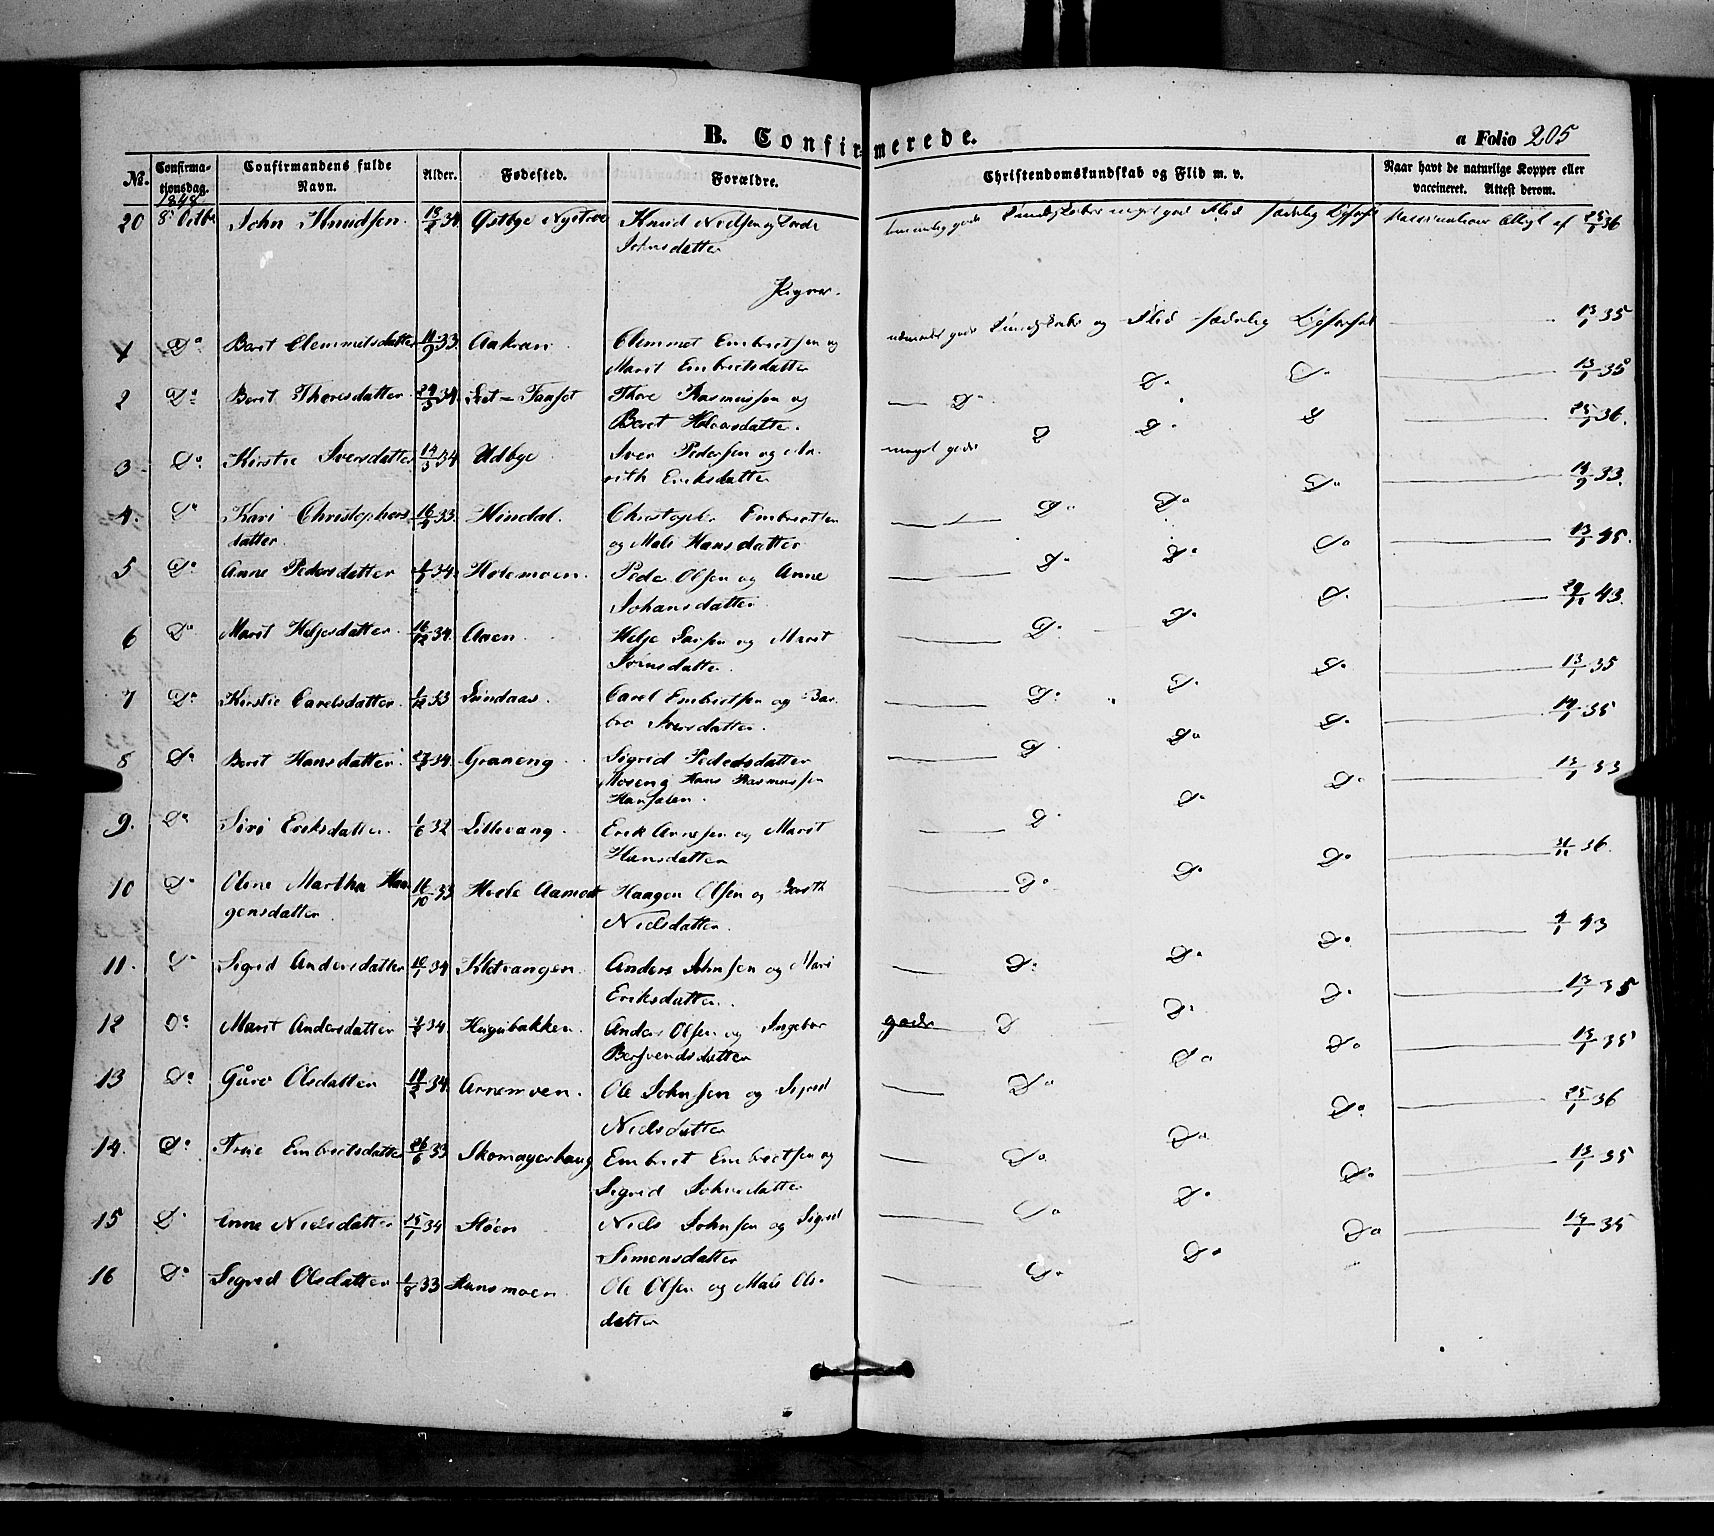 B. Confirmerede.
a Folio 205
No.
Confirma-
tionsdag.
1848
Confirmandens fulde
Navn.
Alder.
Fødested.
Forældre.
Christendomskundskab og Flid m. v.
Naar havt de naturlige Kopper eller
vaccineret. Attest derom.
20 8de Octbr John Knudsen. 34 Østbye Knud Nielsen og
Johnsdatter
temmelig gode Kundskaber meget god Flid sædelig Opførsel 25/1 36
Piger.
1 Do Beret Clemmetsdatter 11/9 33. Aakran. Clemmet Embretsen og
Marit Embretsdatter
gode Kundskaber og Flid sædelig Opførsel 13/1 35
2 Do Beret Thoresdatter 34. Thore Rasmussen og
Beret
Do Do Do 13/1 35
3 Do Kirstie Iversdatter 34 Udbye Iver Pedersen og Ma-
rith Eriksdatter
meget gode Do Do 25/1 36.
4. Do Kari Christophers 16/ 33. Hindal. Embretsen
datter. og Mali Hansdatter
Do Do Do 33.
5 Do Anne Pedersdatter 34. Holemoen. Peder Olsen og Anne
Johansdatter
Do Do Do 13/1 45.
6 Do Marit Heljesdatter. 16/12 34. Aaen. Helje Larsen og Marit
Do Do Do 43.
7 Do Kirstie Carelsdatter. 33 Sundaas. Carel Embretsen og Bar-
bro Iversdatter.
Do Do Do 13/1 35
8 Do Beret Hansdatter. 34. Graneng. Sigrid Pedersdatter
Moseng Hans Rasmussen
Do Do Do 35
9. Do Siri Eriksdatter 1/6 32 Lillevang. Erik Arnesen og Marit
Hansdatter
Do Do 33
10 Do Oline Martha Haa 16/10 33 Aamodt Haagen Olsen og Bereth
gensdatter. Nielsdatter.
Do Do Do 36.
11. Do Sigrid Andersdatter 34 Kletvangen. Anders Johnsen og Mari
Eriksdatter.
Do Do Do 43
12 Do Marit Andersdatter 34 Haugsbakken. Anders Olsen og Ingebor
Bersvendsdatter
gode Do Do Do 13/1 35
13 Do Guro Olsdatter 34. Arnemoen. Ole Johnsen og Sigrid
Nielsdatter
Do Do Do 13/1 35
14. Do Embretsdatter 26/6 33 Skomagerhaug Embret Embretsen og
Sigrid Johnsdatter
Do Do Do 25/1 36
15 Do Anne Nielsdatter 15/1 34 Støen Niels Johnsen og Sigrid
Simensdatter
Do Do Do 13/1 35
16 Do Sigrid Olsdatter 1/8 33 Hansmoen. Ole Olsen og Mari Ols-
datter
Do Do Do 35